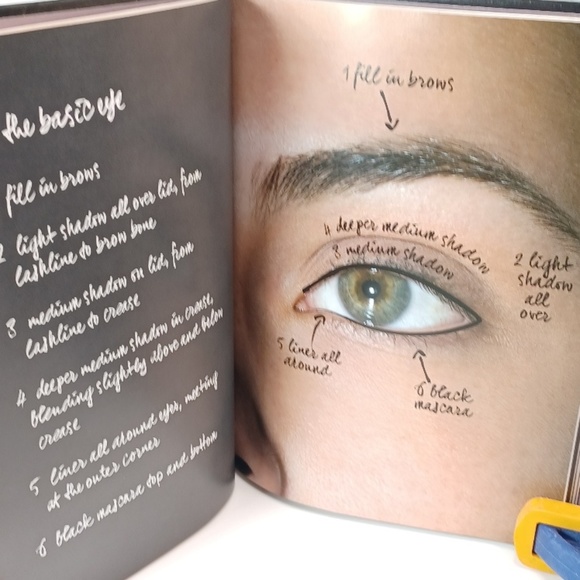 the basic eye
fill in brows
2 light shadow all over lid, from
lashline to brow bone
3 medium shadow on lid, from
lashline to crease
4 deeper medium shadow in crease,
blending slightly above and below
crease
5 liner all around eyes, meeting
at the outer corner
6 black mascara top and bottom
1 fill in brows
4 deeper medium shadow
3 medium shadow
2 light
shadow
all
over
5 liner all
around
6 black
mascara